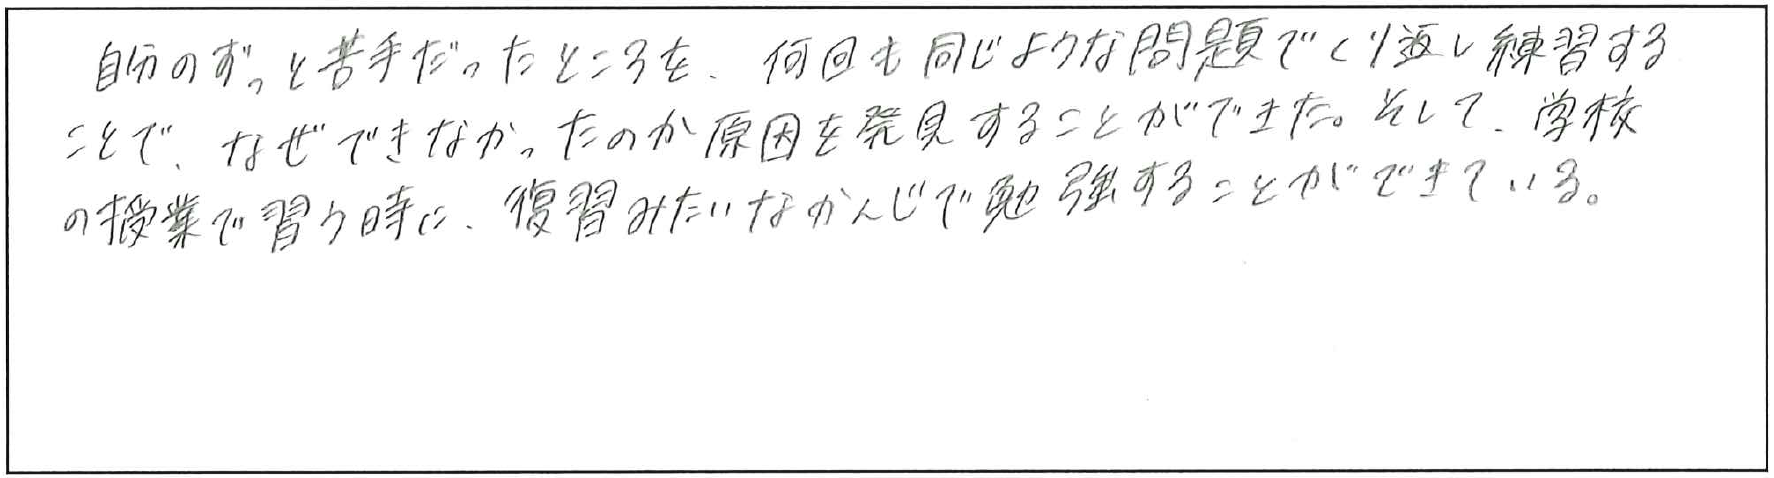 自分のずっと苦手だったところを、何回も同じような問題でくり返し練習する
ことで、なぜできなかったのか原因を発見することができた。そして、学校
の授業で習う時に、復習みたいなかんじで勉強することができている。